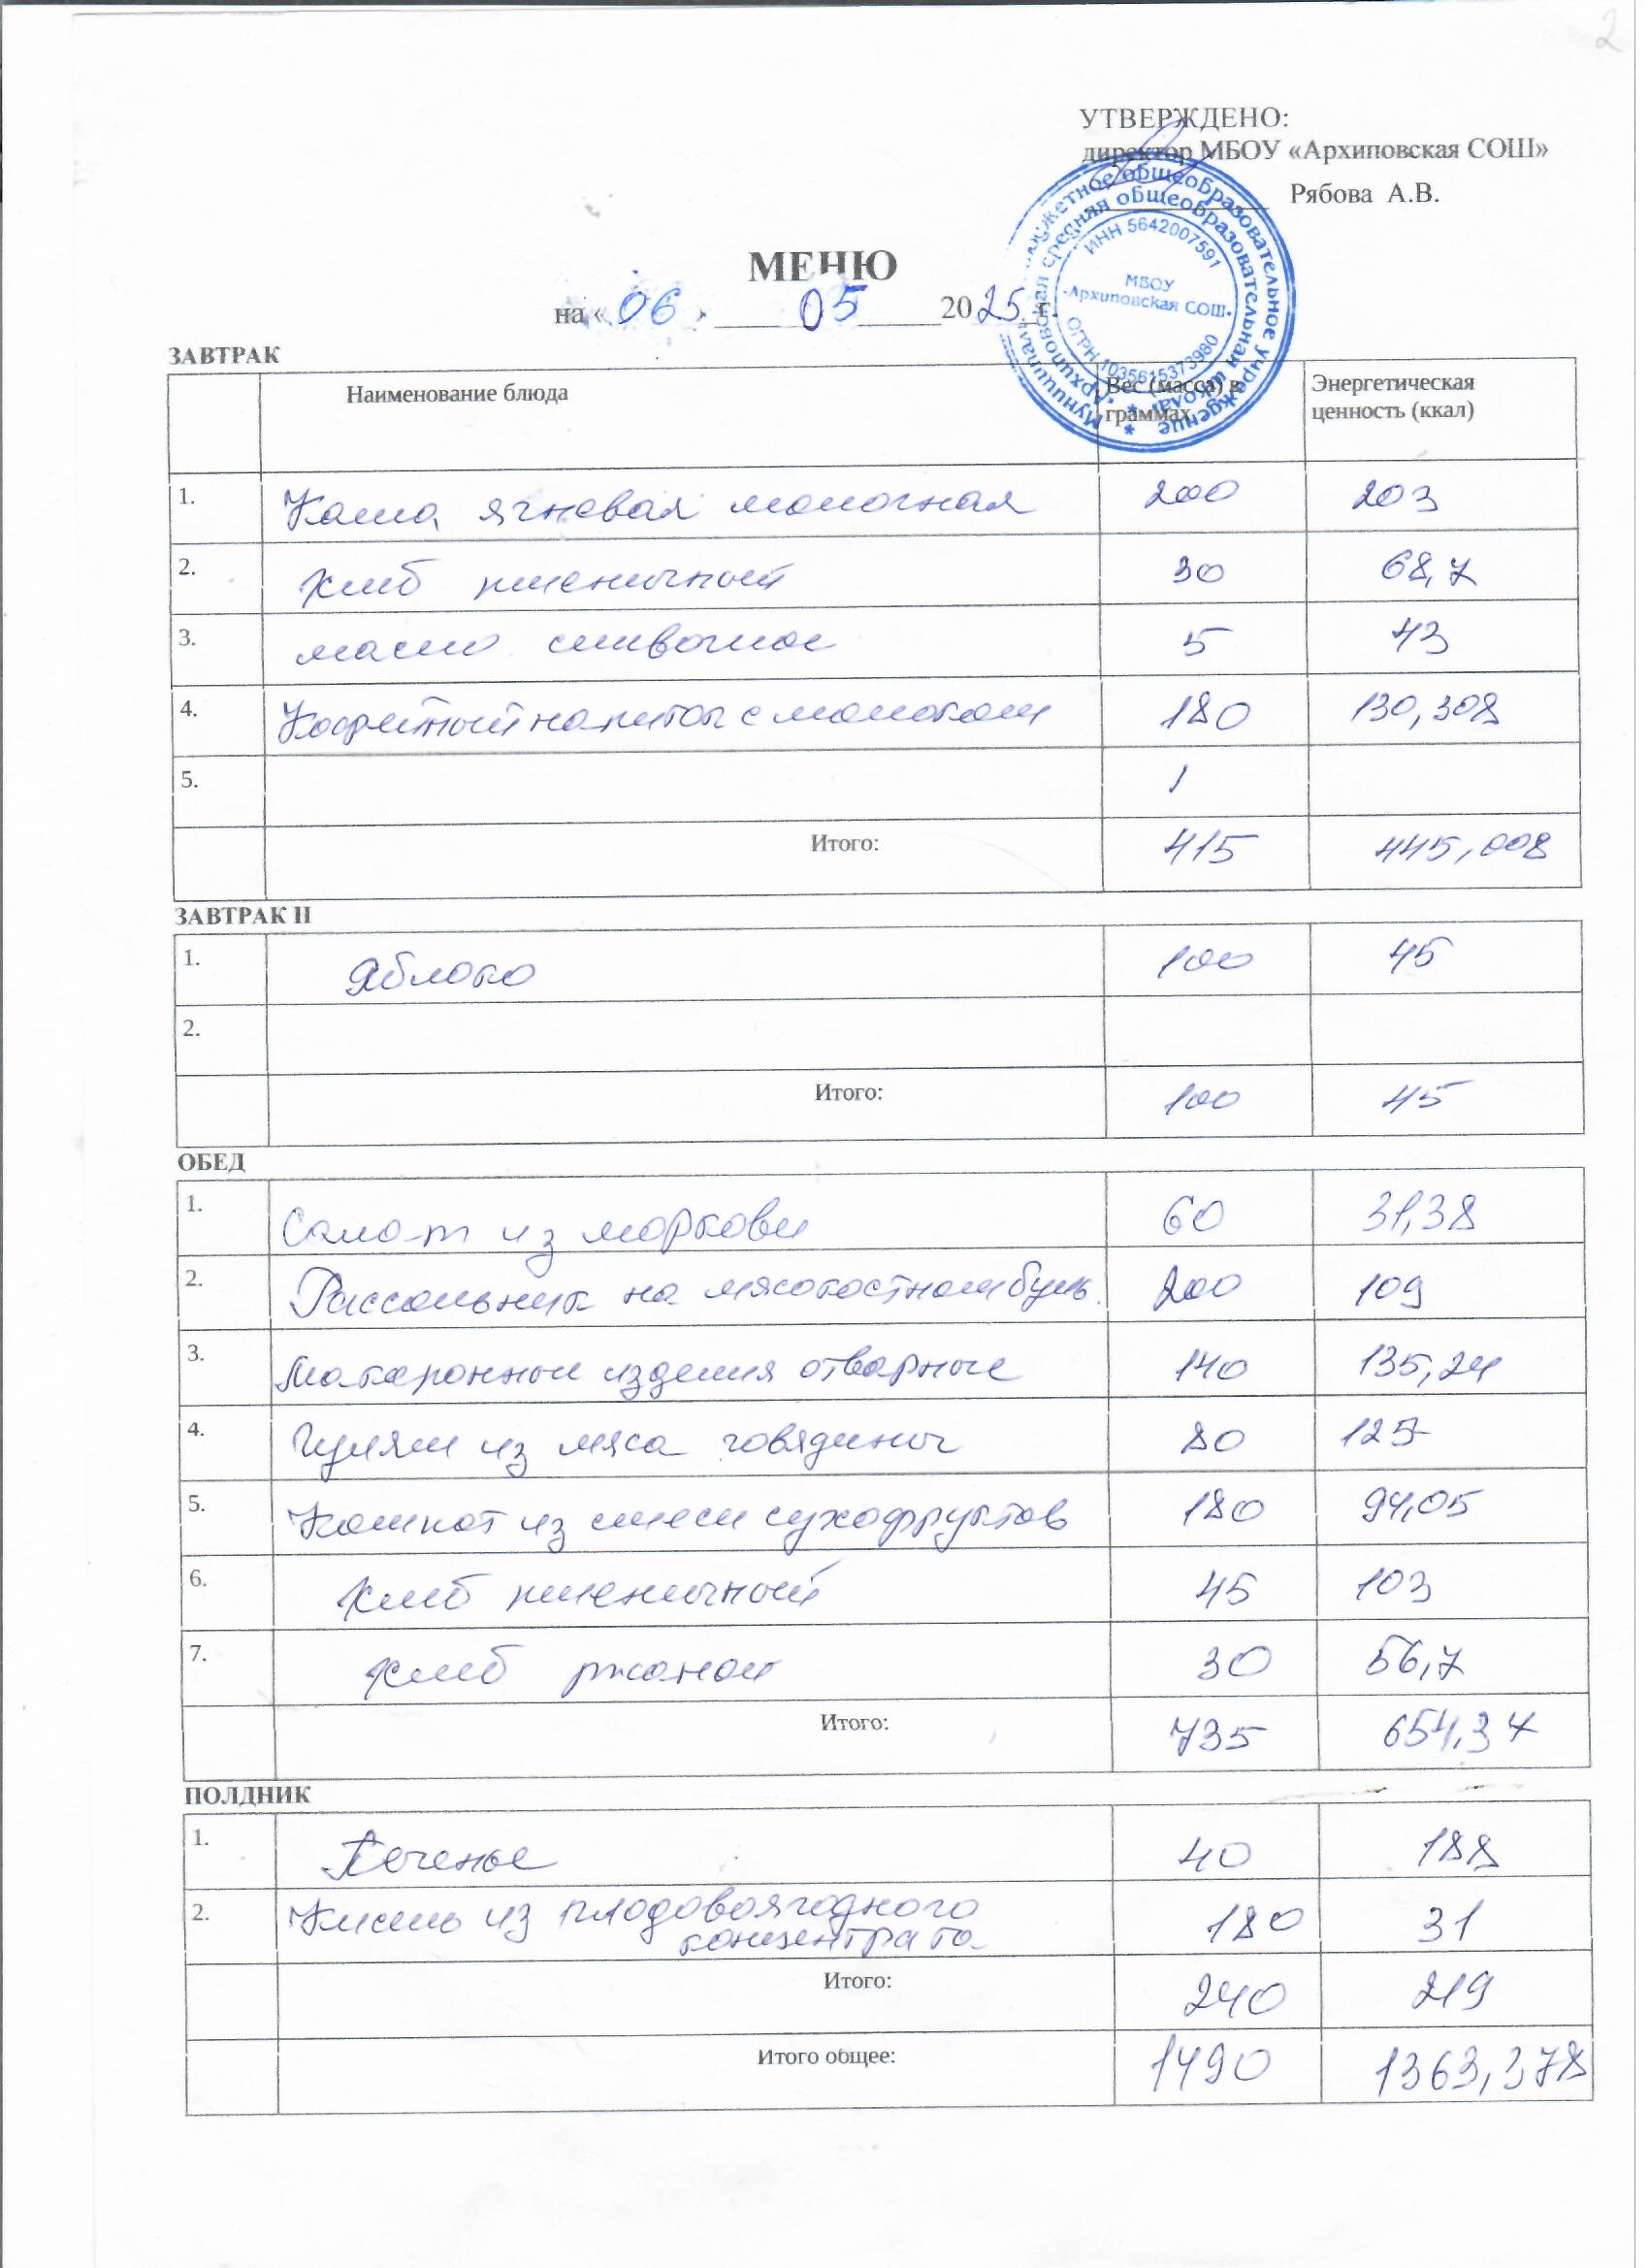 2
УТВЕРЖДЕНО:
директор МБОУ «Архиповская СОШ»
Рябова А.В.
бюджетное общеобразовательное учреждение
средняя общеобразовательная школа
ИНН 5642007591
МБОУ
«Архиповская СОШ»
ОГРН 1035615373980
МЕНЮ
на « 06 » 05 2025 г.
ЗАВТРАК
Наименование блюда Вес (масса) в граммах Энергетическая ценность (ккал)
1. Каша ячневая молочная 200 203
2. Хлеб пшеничный 30 68,7
3. масло сливочное 5 43
4. Кофейный напиток с молоком 180 130,308
5.
Итого: 415 445,008
ЗАВТРАК II
1. Яблоко 100 45
2.
Итого: 100 45
ОБЕД
1. Салат из моркови 60 31,38
2. Рассольник на мясокостном бул. 200 109
3. Макаронные изделия отварные 140 135,24
4. Гуляш из мяса говядины 80 125
5. Компот из смеси сухофруктов 180 94,05
6. Хлеб пшеничный 45 103
7. Хлеб ржаной 30 56,7
Итого: 735 654,37
ПОЛДНИК
1. Печенье 40 188
2. Кисель из плодовоягодного
концентрата 180 31
Итого: 240 219
Итого общее: 1490 1363,378